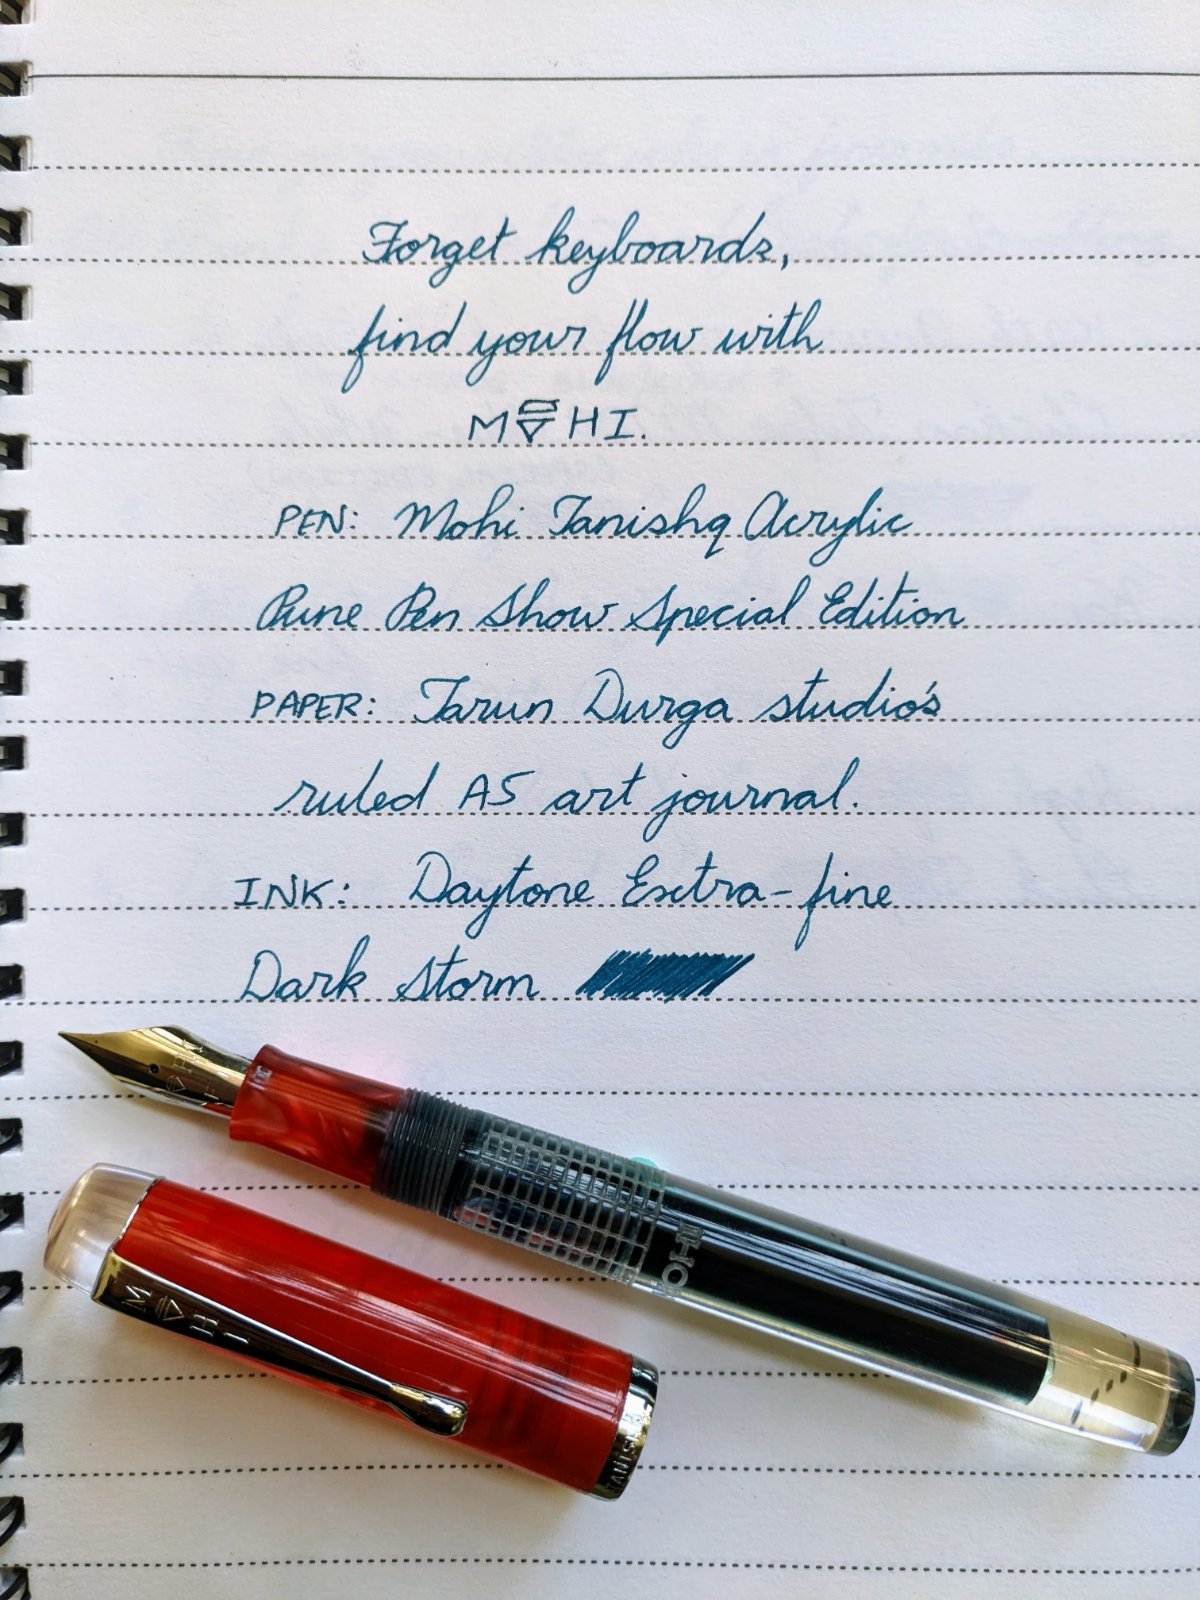 Forget keyboards,
find your flow with
MOHI.
PEN: Mohi Tanishq Acrylic
Pune Pen Show Special Edition
PAPER: Tarun Durga studio's
ruled A5 art journal.
INK: Daytone Extra-fine
Dark Storm
MOHI
MOHI
TANISHQ